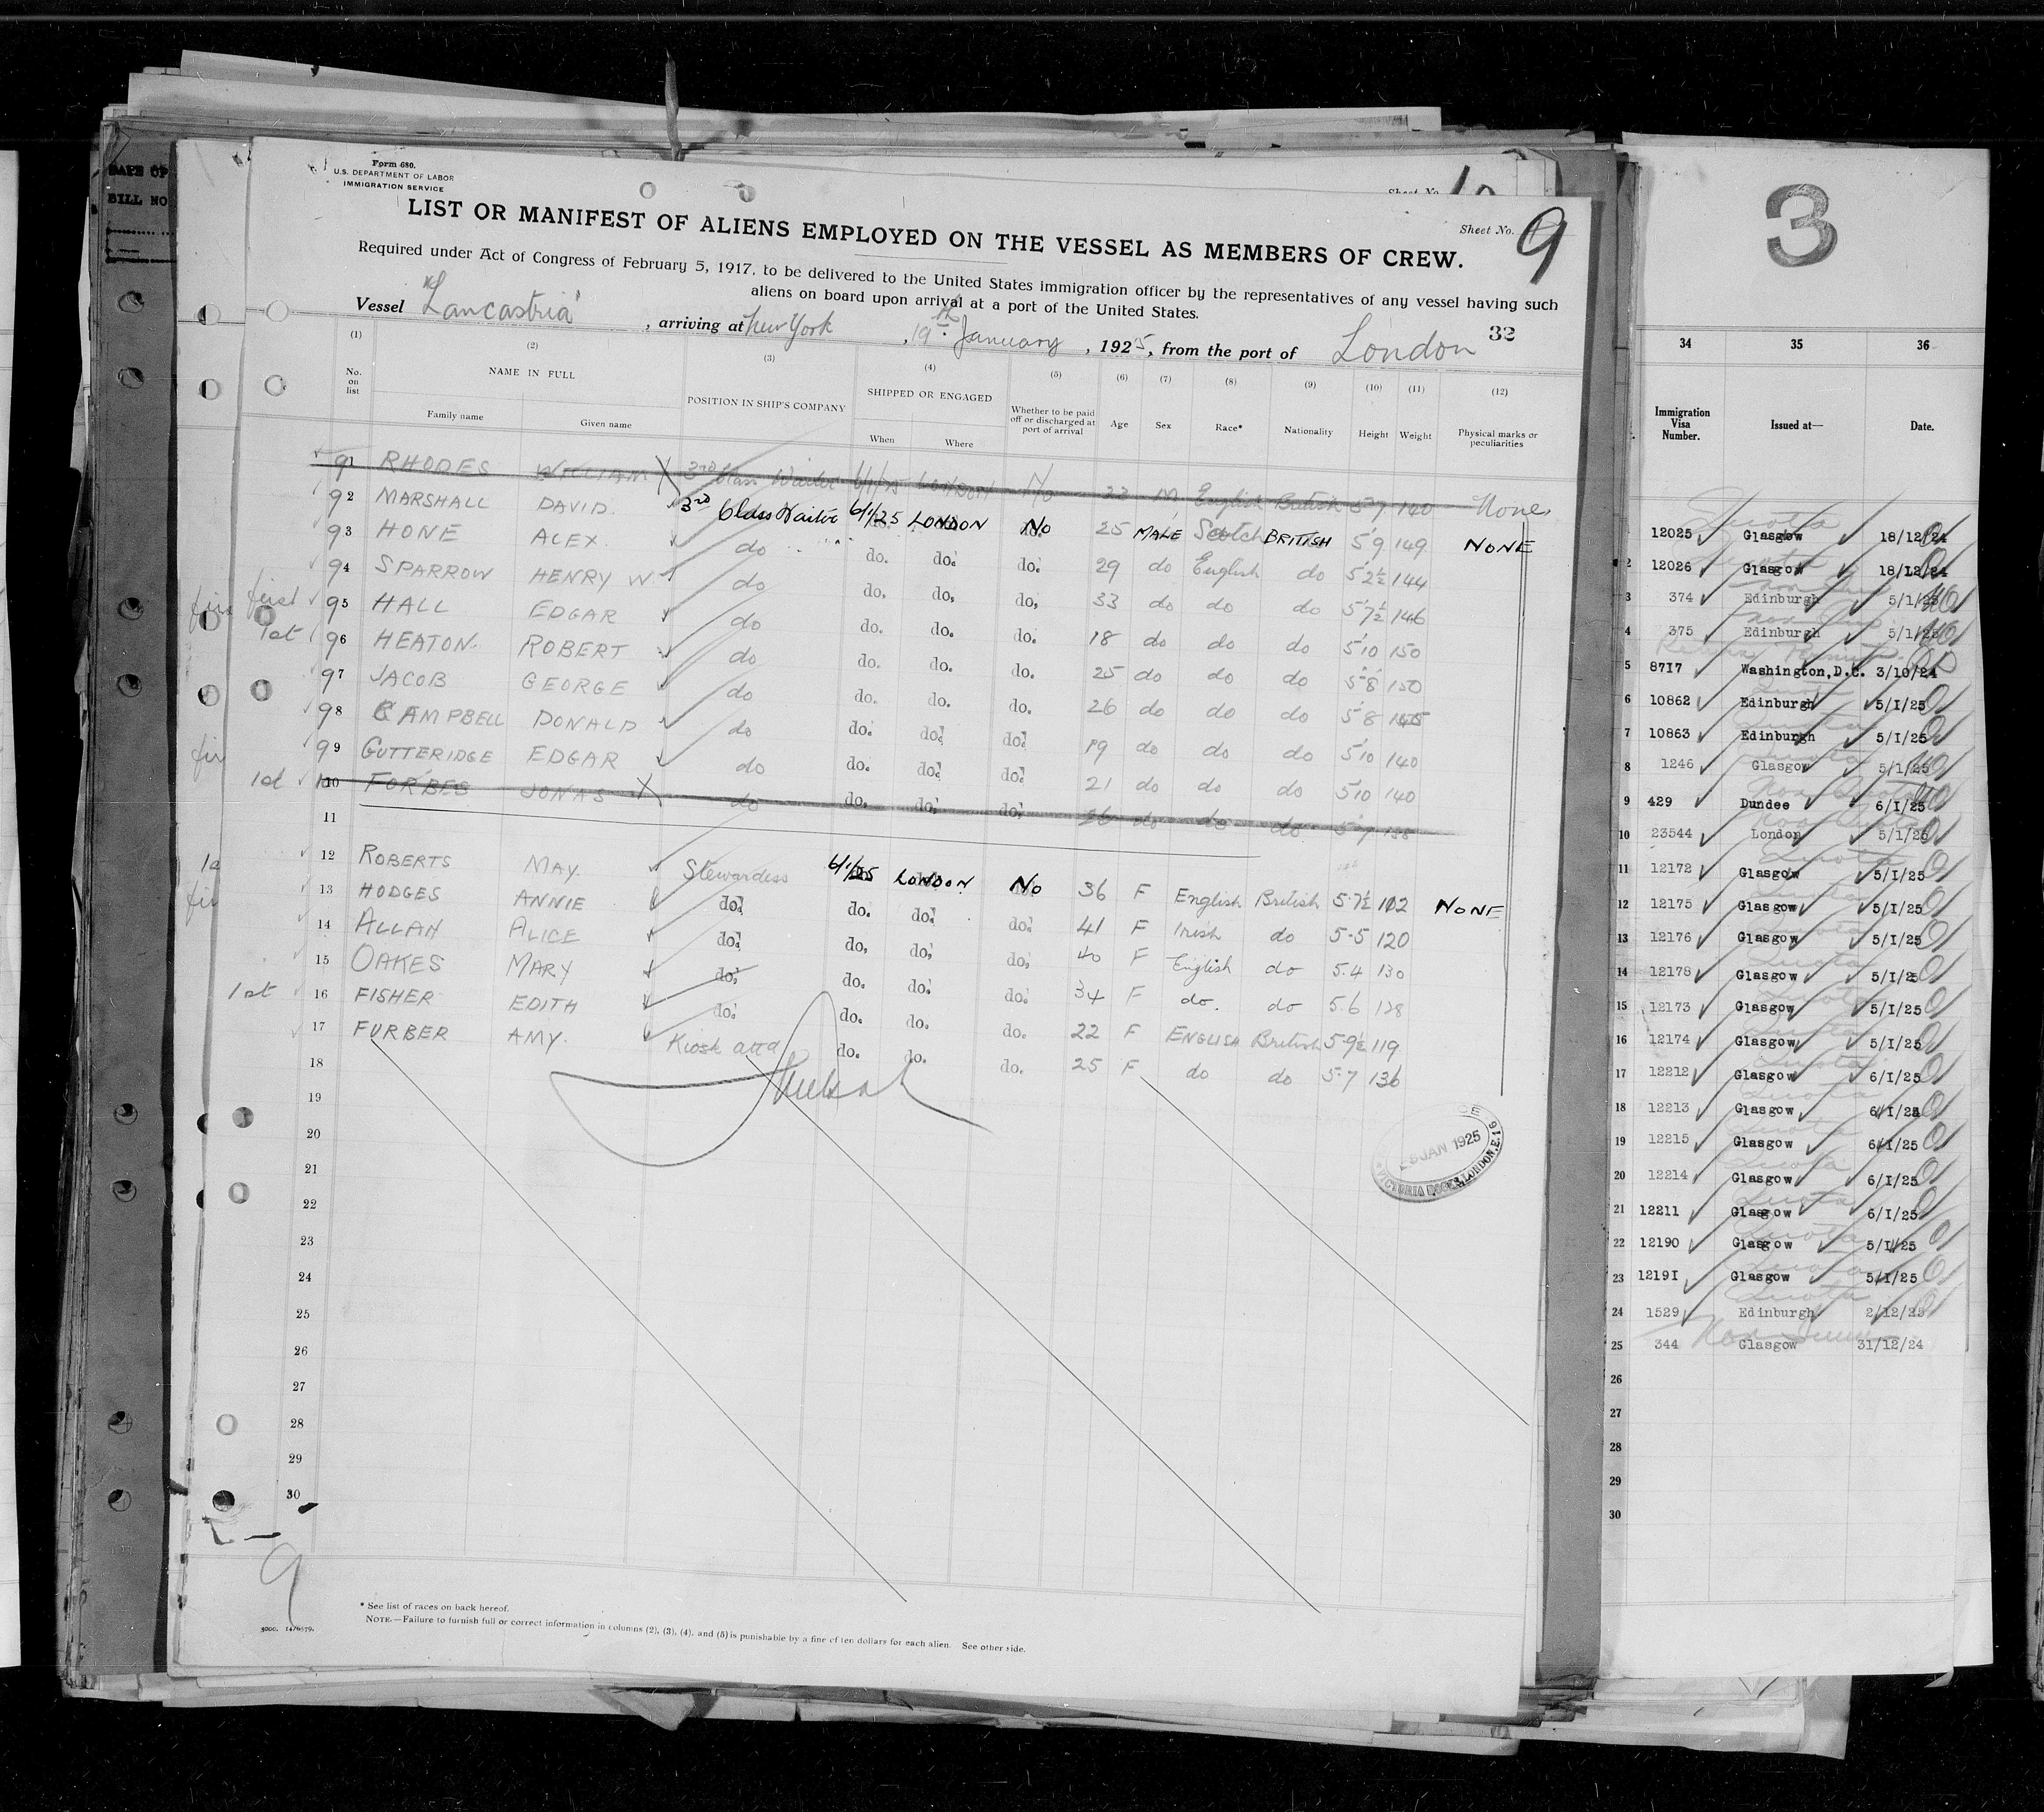 Form 680.
U.S. DEPARTMENT OF LABOR
IMMIGRATION SERVICE
Sheet No. 9
LIST OR MANIFEST OF ALIENS EMPLOYED ON THE VESSEL AS MEMBERS OF CREW.
Required under Act of Congress of February 5, 1917, to be delivered to the United States immigration officer by the representatives of any vessel having such
aliens on board upon arrival at a port of the United States.
Vessel "Lancastria", arriving at New York, 19th January, 1925, from the port of London
32
(1) (2) (3) (4) (5) (6) (7) (8) (9) (10) (11) (12)
No. on list NAME IN FULL Family name Given name POSITION IN SHIP'S COMPANY SHIPPED OR ENGAGED When Where Whether to be paid off or discharged at port of arrival Age Sex Race* Nationality Height Weight Physical marks or peculiarities
91 RHODES WILLIAM X 3rd Class Waiter 6/1/25 LONDON No 23 M English British 5'7 140 None
92 MARSHALL DAVID. 3rd Class Waiter 6/1/25 LONDON No 25 MALE Scotch BRITISH 5'9 149 NONE
93 HONE ALEX. do do. do. do. 29 do English do 5'2½ 144
94 SPARROW HENRY W do do. do. do. 33 do do do 5'7½ 146
first 95 HALL EDGAR do do. do. do. 18 do do do 5'10 150
1st 96 HEATON. ROBERT do do. do. do. 25 do do do 5'8 150
97 JACOB GEORGE do do. do. do. 26 do do do 5'8 145
98 CAMPBELL DONALD do do. do. do. 19 do do do 5'10 140
99 GUTTERIDGE EDGAR do do. do. do. 21 do do do 5'10 140
1st 100 FORBES JONAS X do do. do. do. 26 do do do 5'7 138
11
12 ROBERTS MAY. Stewardess 6/1/25 LONDON No 36 F English British 5.7½ 102 NONE
13 HODGES ANNIE do. do. do. do. 41 F Irish do 5.5 120
14 ALLAN ALICE do. do. do. do. 40 F English do 5.4 130
15 OAKES MARY do. do. do. do. 34 F do. do 5.6 128
1st 16 FISHER EDITH do. do. do. do. 22 F ENGLISH British 5.9½ 119
17 FURBER AMY. Kiosk attd do. do. do. 25 F do do 5.7 136
18
19
20
21
22
23
24
25
26
27
28
29
30
9
JAN 1925
VICTORIA DOCKS, LONDON, E.16
* See list of races on back hereof.
NOTE.—Failure to furnish full or correct information in columns (2), (3), (4), and (5) is punishable by a fine of ten dollars for each alien. See other side.
3
34 35 36
Immigration Visa Number. Issued at— Date.
12025 Glasgow 18/12/24
2 12026 Glasgow 18/12/24
3 374 Edinburgh 5/1/25
4 375 Edinburgh 5/1/25
5 8717 Washington, D.C. 3/10/24
6 10862 Edinburgh 5/1/25
7 10863 Edinburgh 5/1/25
8 1246 Glasgow 5/1/25
9 429 Dundee 6/1/25
10 23544 London 5/1/25
11 12172 Glasgow 5/1/25
12 12175 Glasgow 5/1/25
13 12176 Glasgow 5/1/25
14 12178 Glasgow 5/1/25
15 12173 Glasgow 5/1/25
16 12174 Glasgow 5/1/25
17 12212 Glasgow 6/1/25
18 12213 Glasgow 6/1/25
19 12215 Glasgow 6/1/25
20 12214 Glasgow 6/1/25
21 12211 Glasgow 6/1/25
22 12190 Glasgow 5/1/25
23 12191 Glasgow 5/1/25
24 1529 Edinburgh 2/12/25
25 344 Glasgow 31/12/24
26
27
28
29
30